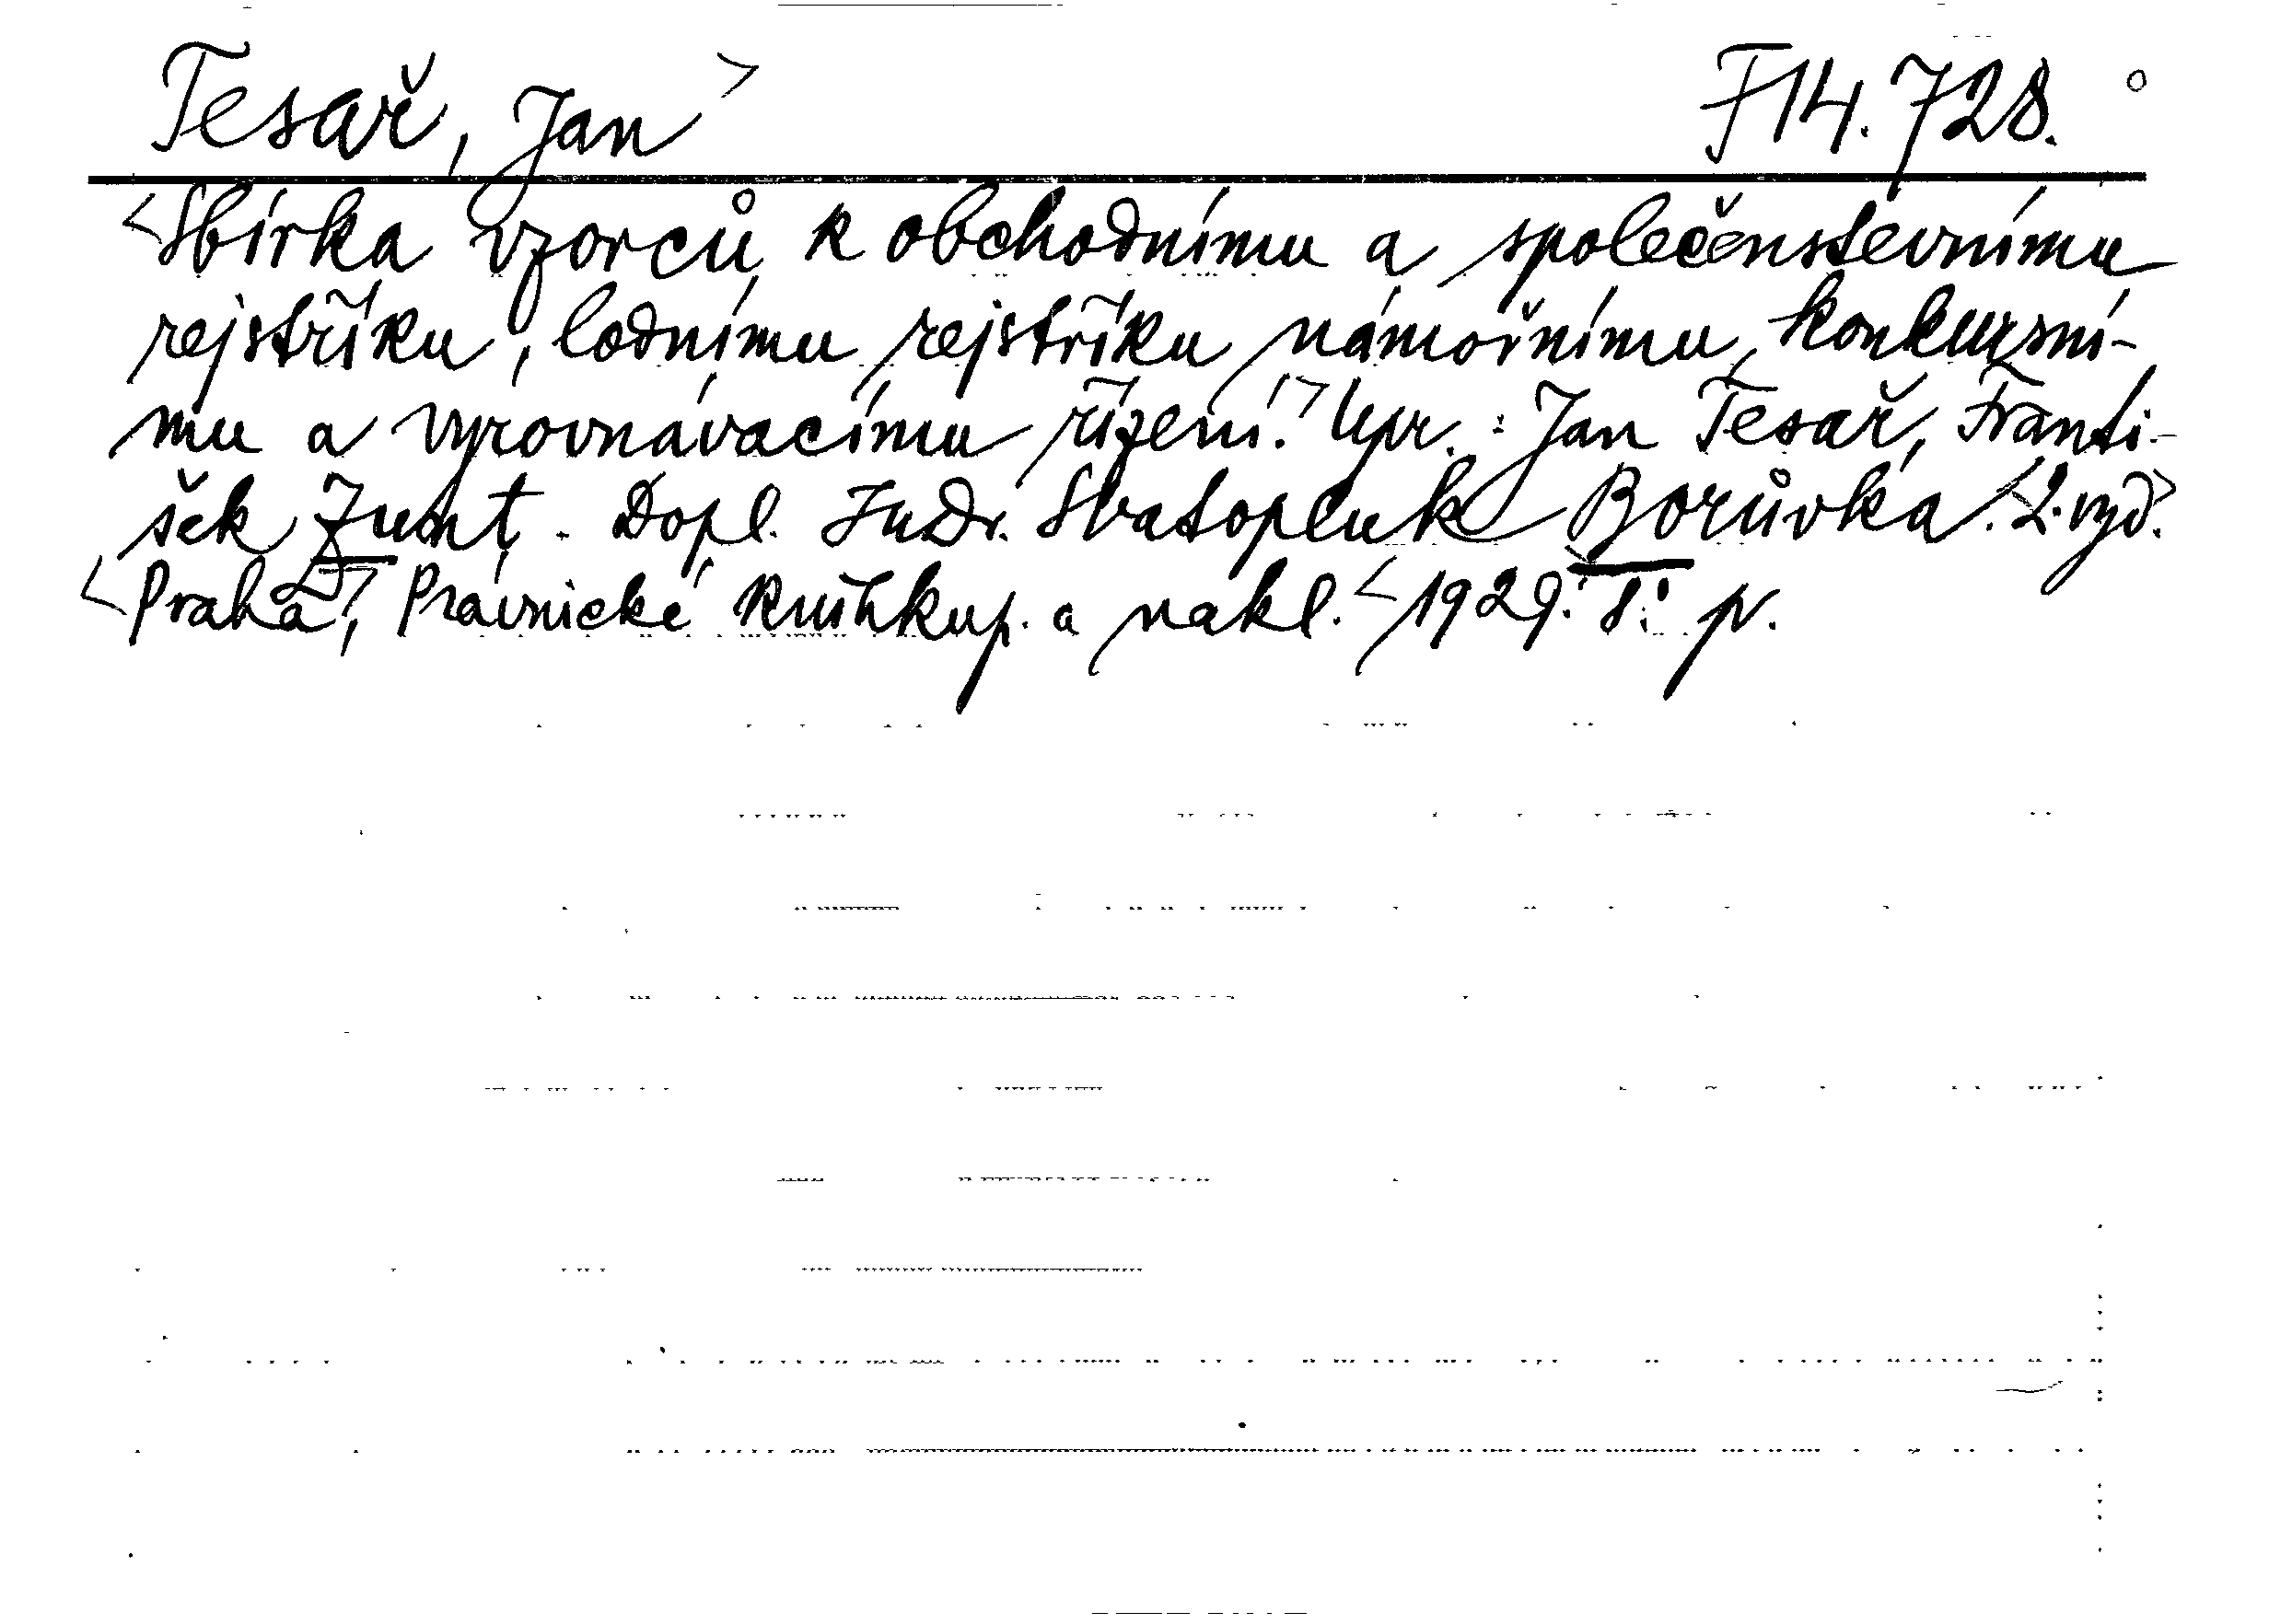 Tesař, Jan > F 14.728.
<Sbírka vzorců k obchodnímu a společenstevnímu
rejstříku, lodnímu rejstříku námořnímu, konkursní-
mu a vyrovnávacímu řízení.> Upr.: Jan Tesař, Franti-
šek Zunt. Dopl. JuDr. Svatopluk Borůvka. <2. vyd.>
<Praha>, Právnické knihkup. a nakl. <1929. 8° p.